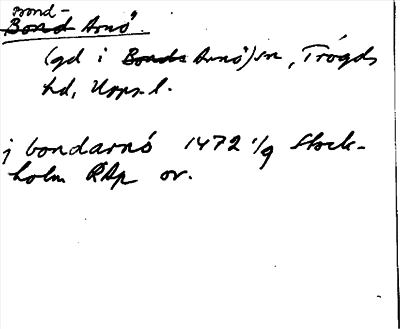 Bond-
Bond Arnö.
(gd i Bonds Arnö) sn, Trögds
hd, Upps. l.
j bondarnö 1472 1/9 Stock-
holm RAp or.